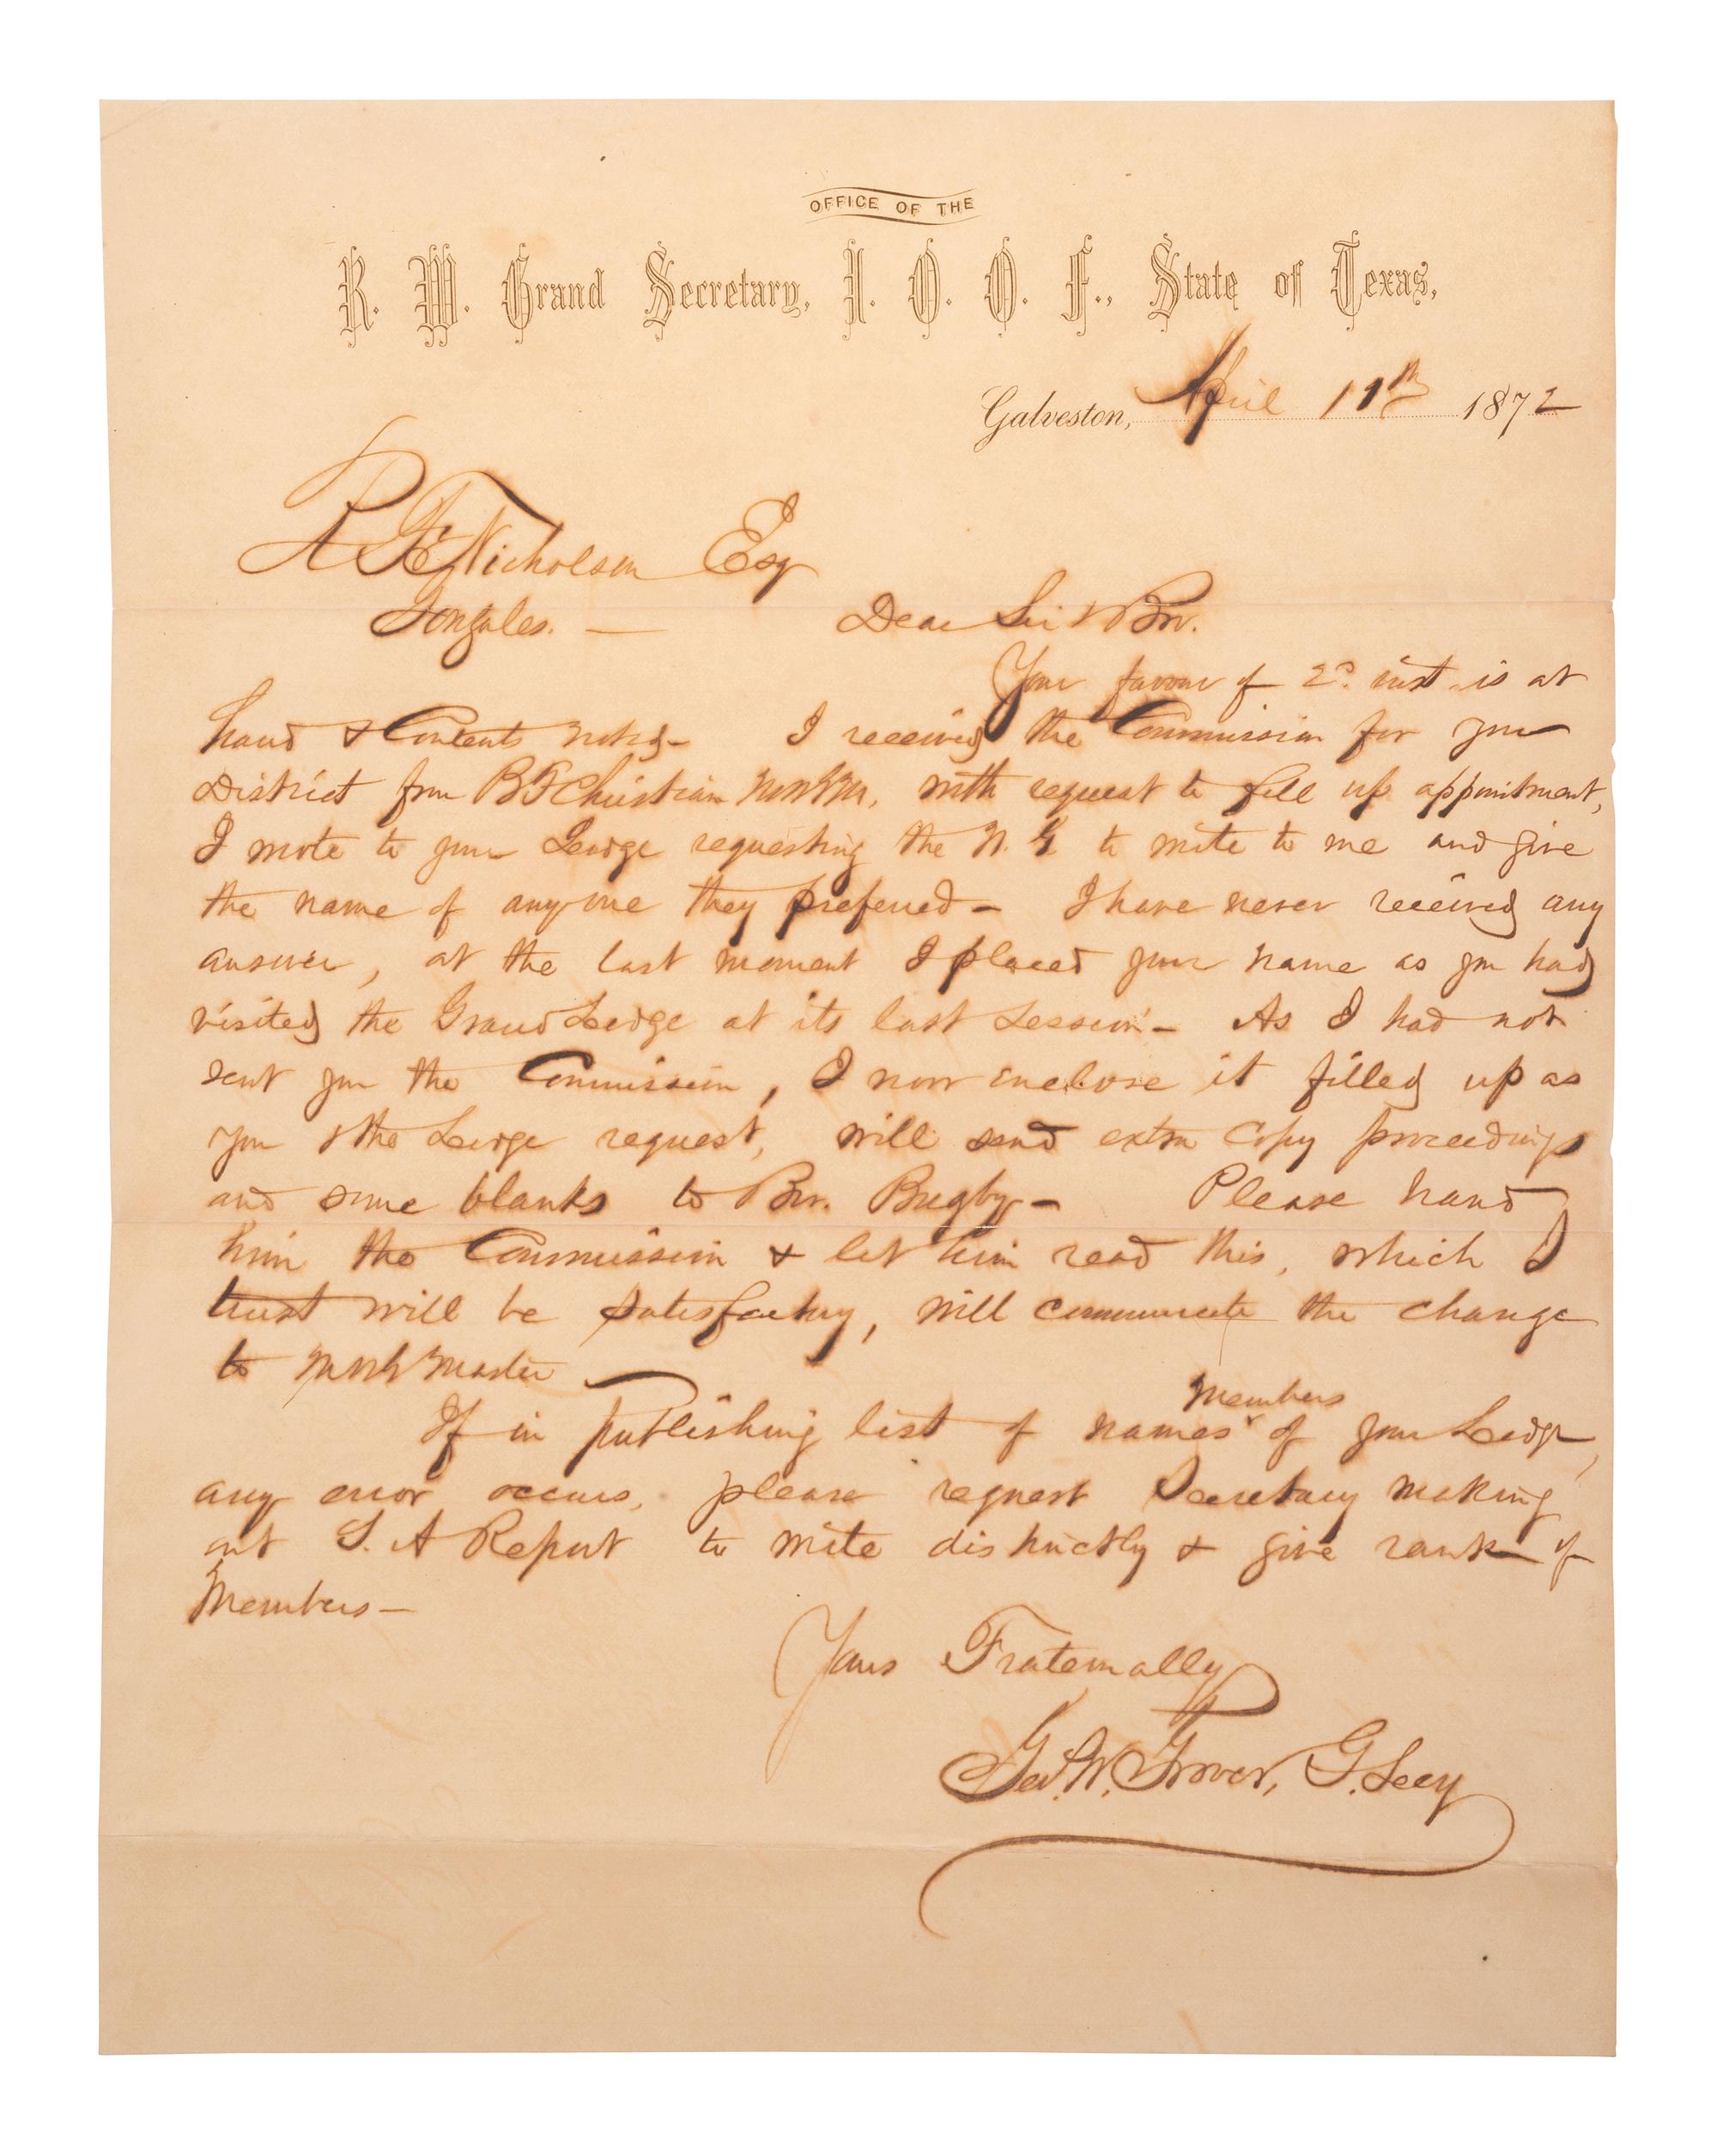 OFFICE OF THE
R. W. Grand Secretary, I. O. O. F., State of Texas,
Galveston, April 11th 1872
Nicholson Esq
Gonzales. —
Dear Sir & Bro.
Your favour of 2d. inst. is at
hand & Contents noted - I received the Commission for your
District from B F Christian with request to fill up appointment,
I wrote to your Lodge requesting the N. G. to write to me and give
the name of any one they preferred - I have never received any
answer, at the last moment I placed your name as you had
visited the Grand Lodge at its last Session - As I had not
sent you the Commission, I now enclose it filled up as
you & the Lodge request, will send extra Copy proceedings
and some blanks to Bro. Bugby - Please hand
him the Commission & let him read this, which I
trust will be Satisfactory, will communicate the change
to Master
If in publishing list of names of Members of your Lodge,
any error occurs, please request Secretary making
out S. A Report to write distinctly & give rank of
Members -
Yours Fraternally
Geo. W. Grover, G. Secy